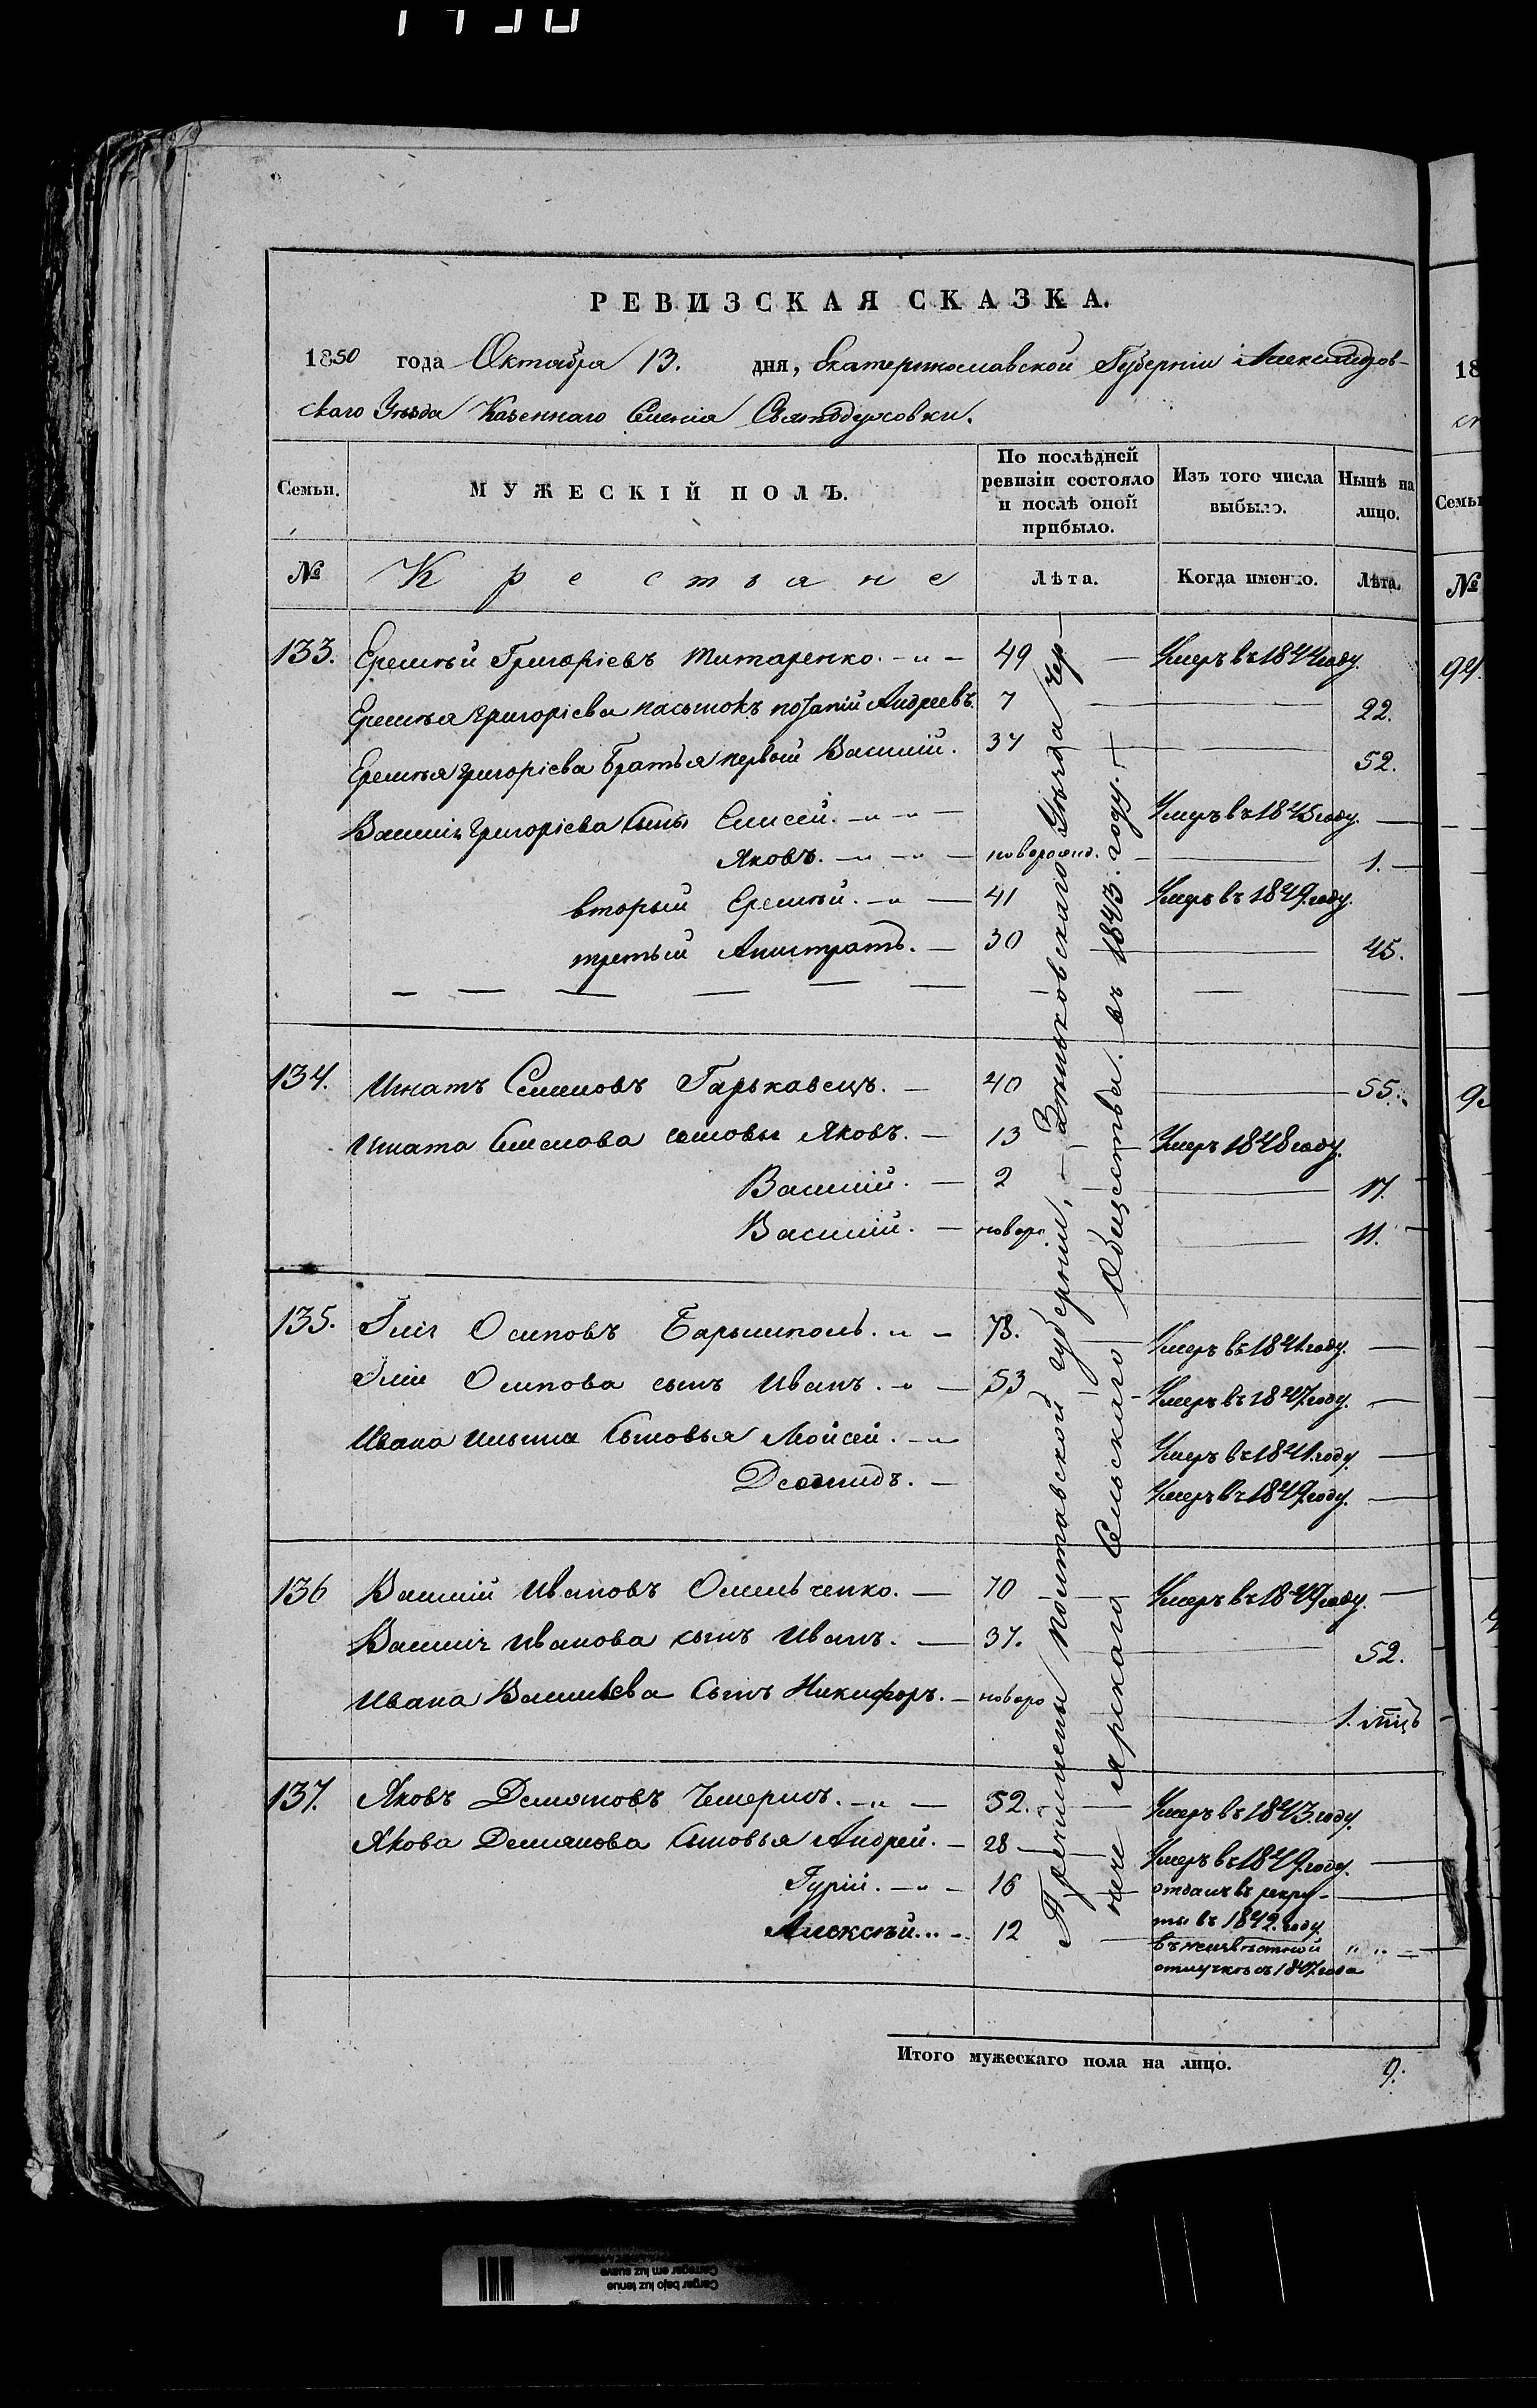 РЕВИЗСКАЯ СКАЗКА.
1850 года Октября 13. дня, Екатеринославской Губерніи Александров-
скаго Уѣзда Казеннаго Селенія Святодуховки.
Семьи. МУЖЕСКІЙ ПОЛЪ. По послѣдней ревизіи состояло и послѣ оной прибыло. Изъ того числа выбыло. Нынѣ на лицо.
№ Крестьяне Лѣта. Когда именно. Лѣта.
133. Еремѣй Григорієвъ Титаренко. 49 Умеръ въ 1844 году.
Еремѣя Григорієва пасынокъ Андреевъ. 7 22.
Еремѣя Григорієва Братья первый Василій. 37 52.
Василія Григорієва сыны Елисей. Умеръ въ 1845 году.
Яковъ. новорожд. 1.
вторый Еремѣй. 41 Умеръ въ 1849 году.
третый Анистратъ. 30 45.
134. Игнатъ Семеновъ Гарькавецъ. 40 55.
Игната Семенова сыновья Яковъ. 13 Умеръ 1848 году.
Василій. 2 17.
Василій. новоро. 11.
135. Илія Осиповъ Барышполь. 78. Умеръ въ 1841 году.
Иліи Осипова сынъ Иванъ. 53 Умеръ въ 1847 году.
Ивана Ильина Сыновья Мойсей. Умеръ въ 1841 году.
Деомидъ. Умеръ въ 1849 году.
136 Василій Ивановъ Омельченко. 70 Умеръ въ 1849 году.
Василія Иванова сынъ Иванъ. 37. 52.
Ивана Васильева Сынъ Никифоръ. новоро 1. мѣцъ
137. Яковъ Демяновъ Чемерисъ. 52. Умеръ въ 1843 году.
Якова Демянова Сыновья Андрей. 28 Умеръ въ 1849 году.
Гурій. 16 отданъ въ рекру-
ты въ 1842 году
Алексѣй. 12 въ неизвѣстной
отлучкѣ съ 1847 года
Причислены Полтавской губерніи, Зѣньковскаго Уѣзда Чер-
Ярскаго Сельскаго Общества. въ 1843. году.
Итого мужескаго пола на лицо. 9.
18
Семьи
№
94.
Cargar bajo luz tenue
Carregar em luz suave